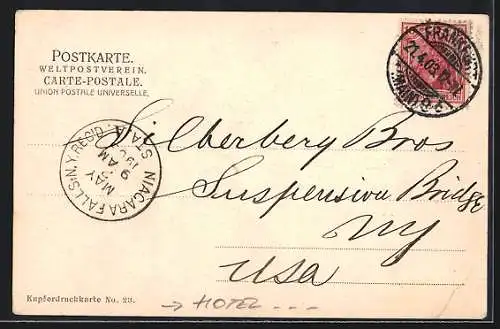 POSTKARTE.
WELTPOSTVEREIN.
CARTE-POSTALE.
UNION POSTALE UNIVERSELLE.
FRANKFURT
21.4.03
(MAIN)
NIAGARA FALLS, N.Y. REC'D.
MAY
9 AM
Silberberg Bros
Suspension Bridge
NY
USA
Kupferdruckkarte No. 23.
→ HOTEL - - -